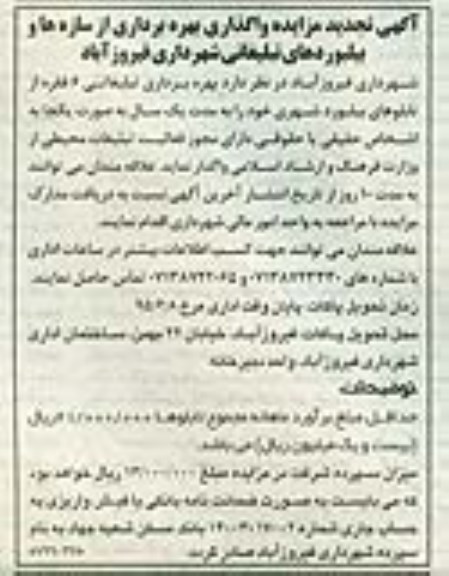 آگهی تجدید مزایده واگذاری بهره برداری از سازه ها و
بیلبوردهای تبلیغاتی شهرداری فیروزآباد
شهرداری فیروزآباد در نظر دارد بهره برداری تبلیغاتی ۶ فقره از
تابلوهای بیلبورد شهری خود را به مدت یک سال به صورت یکجا به
اشخاص حقیقی یا حقوقی دارای مجوز فعالیت تبلیغات محیطی از
وزارت فرهنگ و ارشاد اسلامی واگذار نماید. علاقه مندان می توانند
به مدت ۱۰ روز از تاریخ انتشار آخرین آگهی نسبت به دریافت مدارک
مزایده با مراجعه به واحد امور مالی شهرداری اقدام نمایند.
علاقه مندان می توانند جهت کسب اطلاعات بیشتر در ساعات اداری
با شماره های ۰۷۱۳۸۷۲۳۳۳۰ و ۰۷۱۳۸۷۲۲۰۶۵ تماس حاصل نمایند.
زمان تحویل پاکات: پایان وقت اداری مورخ
محل تحویل پاکات: فیروزآباد، خیابان ۲۲ بهمن، ساختمان اداری
شهرداری فیروزآباد، واحد دبیرخانه
توضیحات:
حداقل مبلغ برآورد ماهانه مجموع تابلوها ریال
(بیست و یک میلیون ریال) می باشد.
میزان سپرده شرکت در مزایده مبلغ ریال خواهد بود
که می بایست به صورت ضمانت نامه بانکی یا فیش واریزی به
حساب جاری شماره بانک مسکن شعبه جهاد به نام
سپرده شهرداری فیروزآباد صادر گردد.